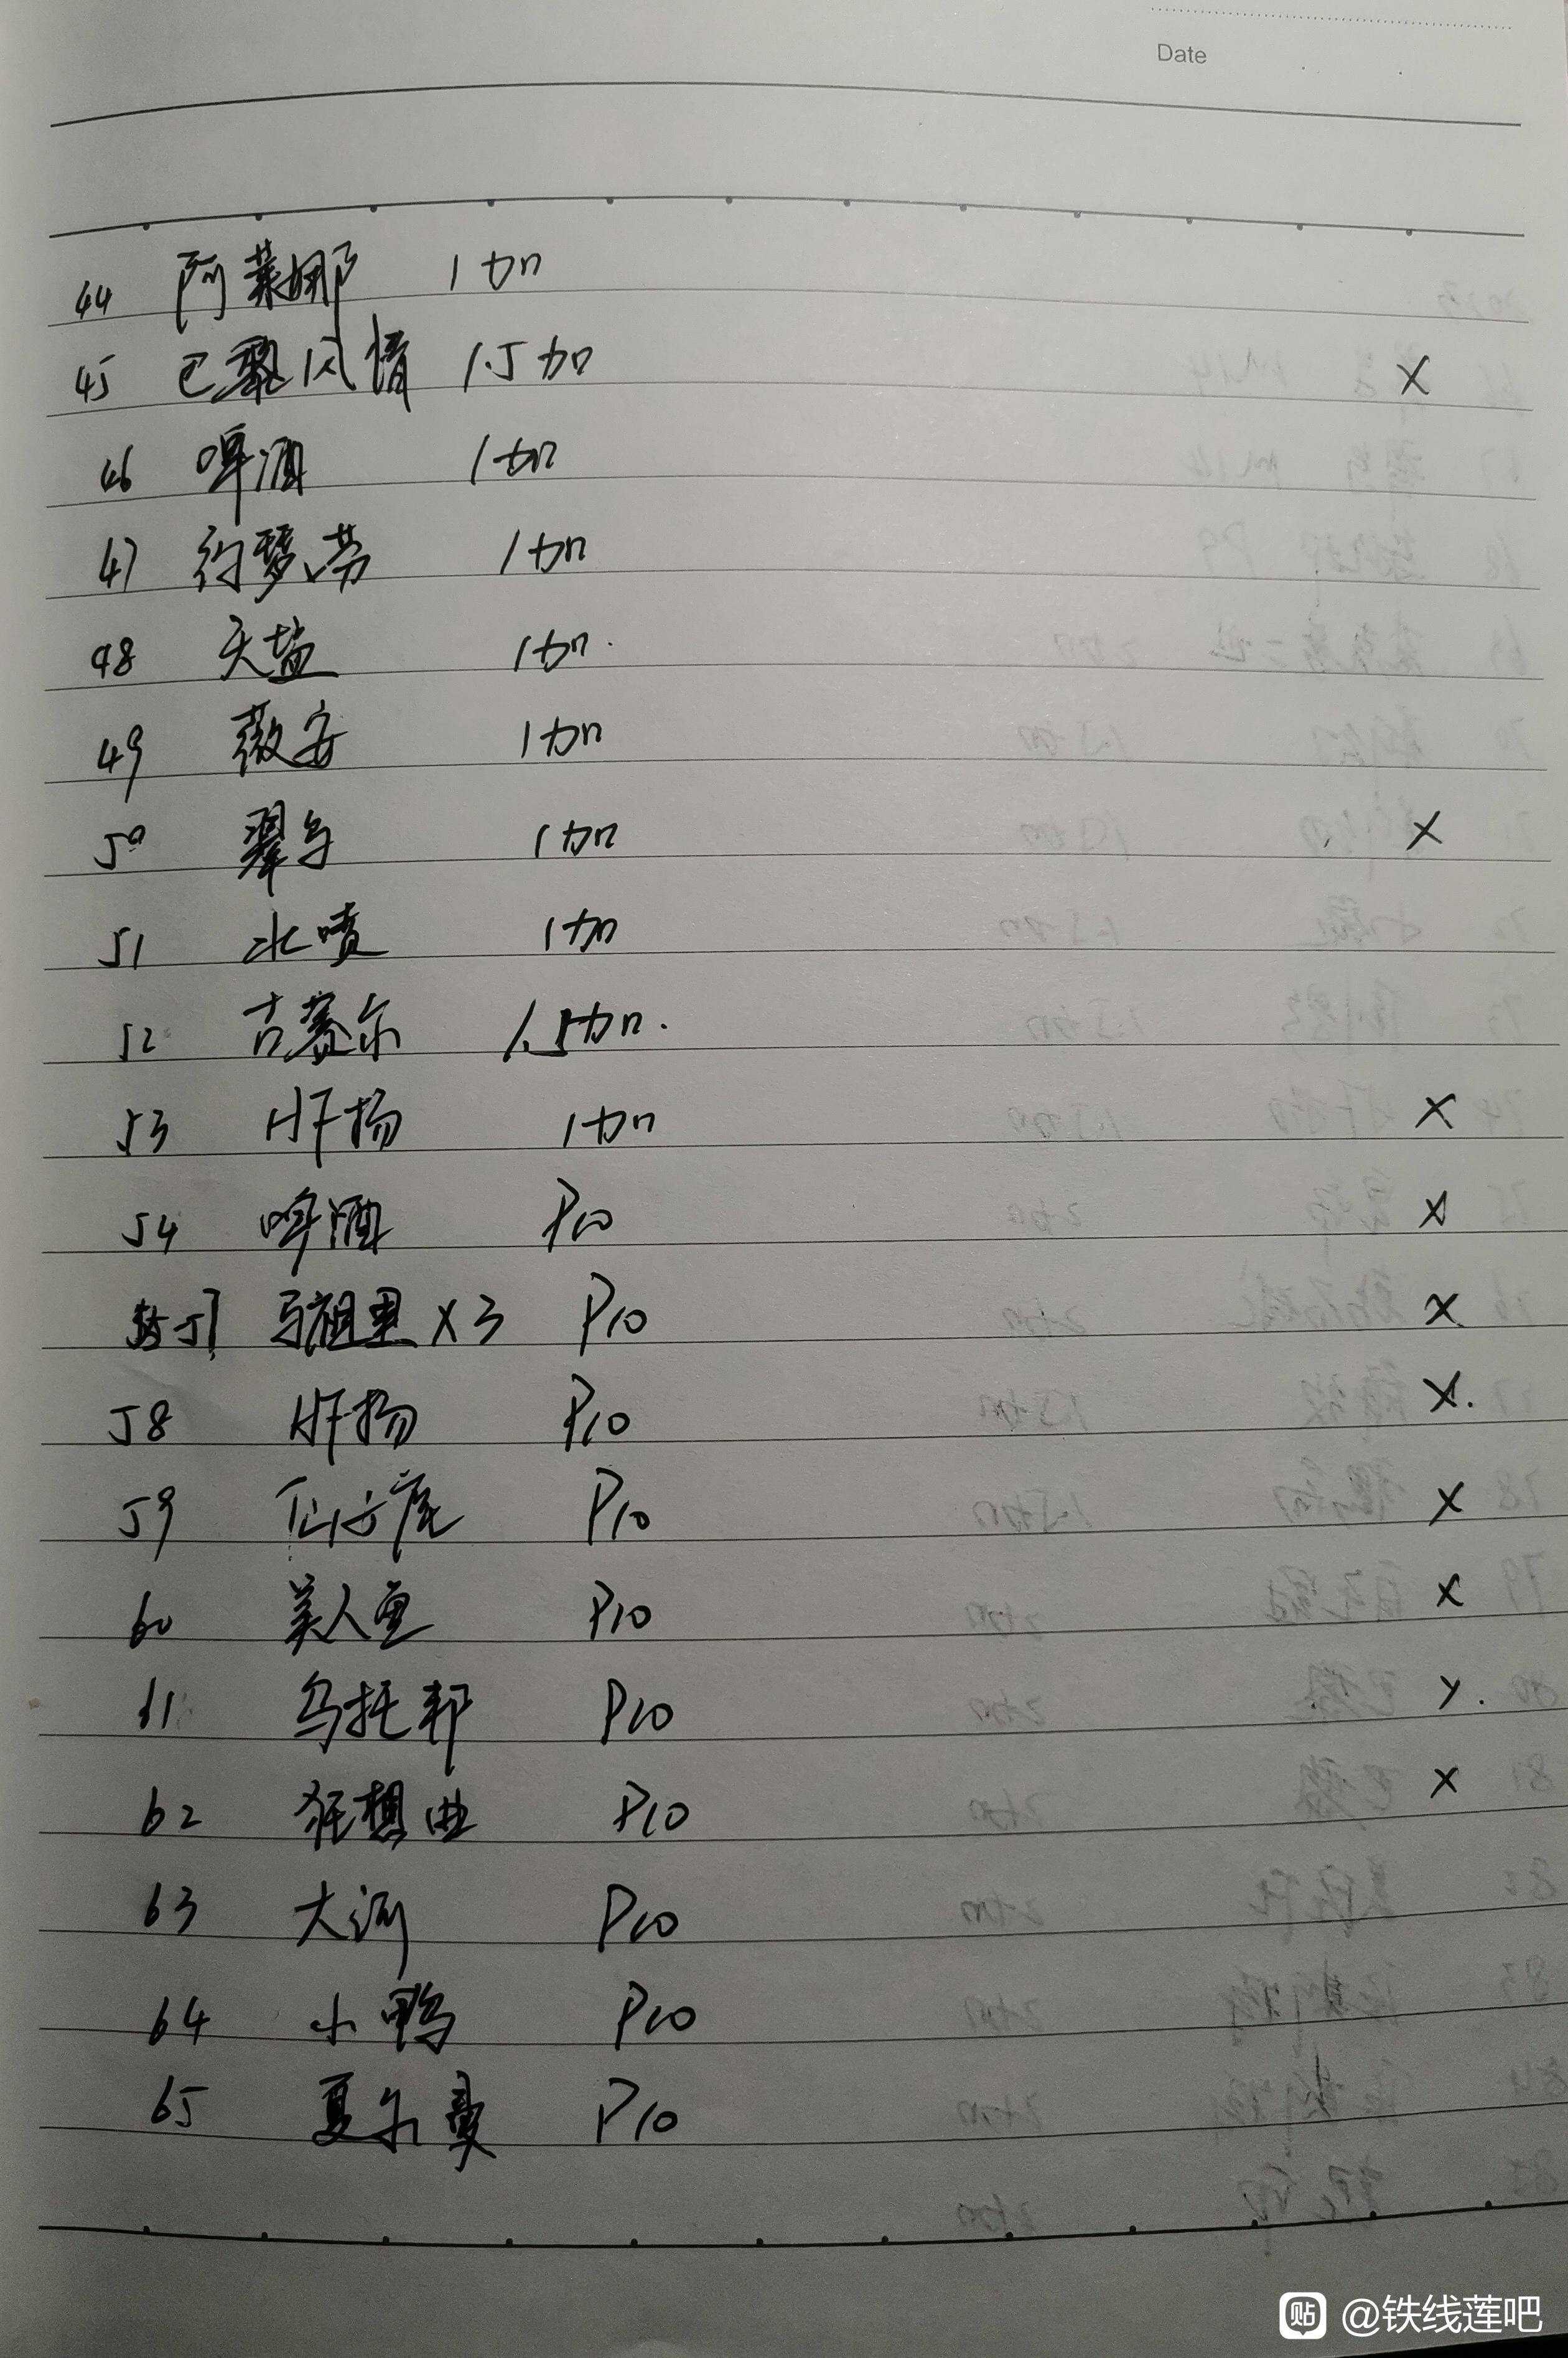 Date
44 阿莱娜 1加
45 巴黎风情 1.5加 X
46 啤酒 1加
47 约瑟芬 1加
48 天盐 1加.
49 薇安 1加
50 翠乌 1加 X
51 水喷 1加
52 吉赛尔 1.5加.
53 HF扬 1加 X
54 啤酒 P10 X
57 马祖里 X3 P10 X
58 HF扬 P10 X.
59 仙女座 P10 X
60 美人鱼 P10 X
61 乌托邦 P10 X.
62 狂想曲 P10 X
63 大河 P10
64 小鸭 P10
65 夏尔曼 P10
贴 @铁线莲吧